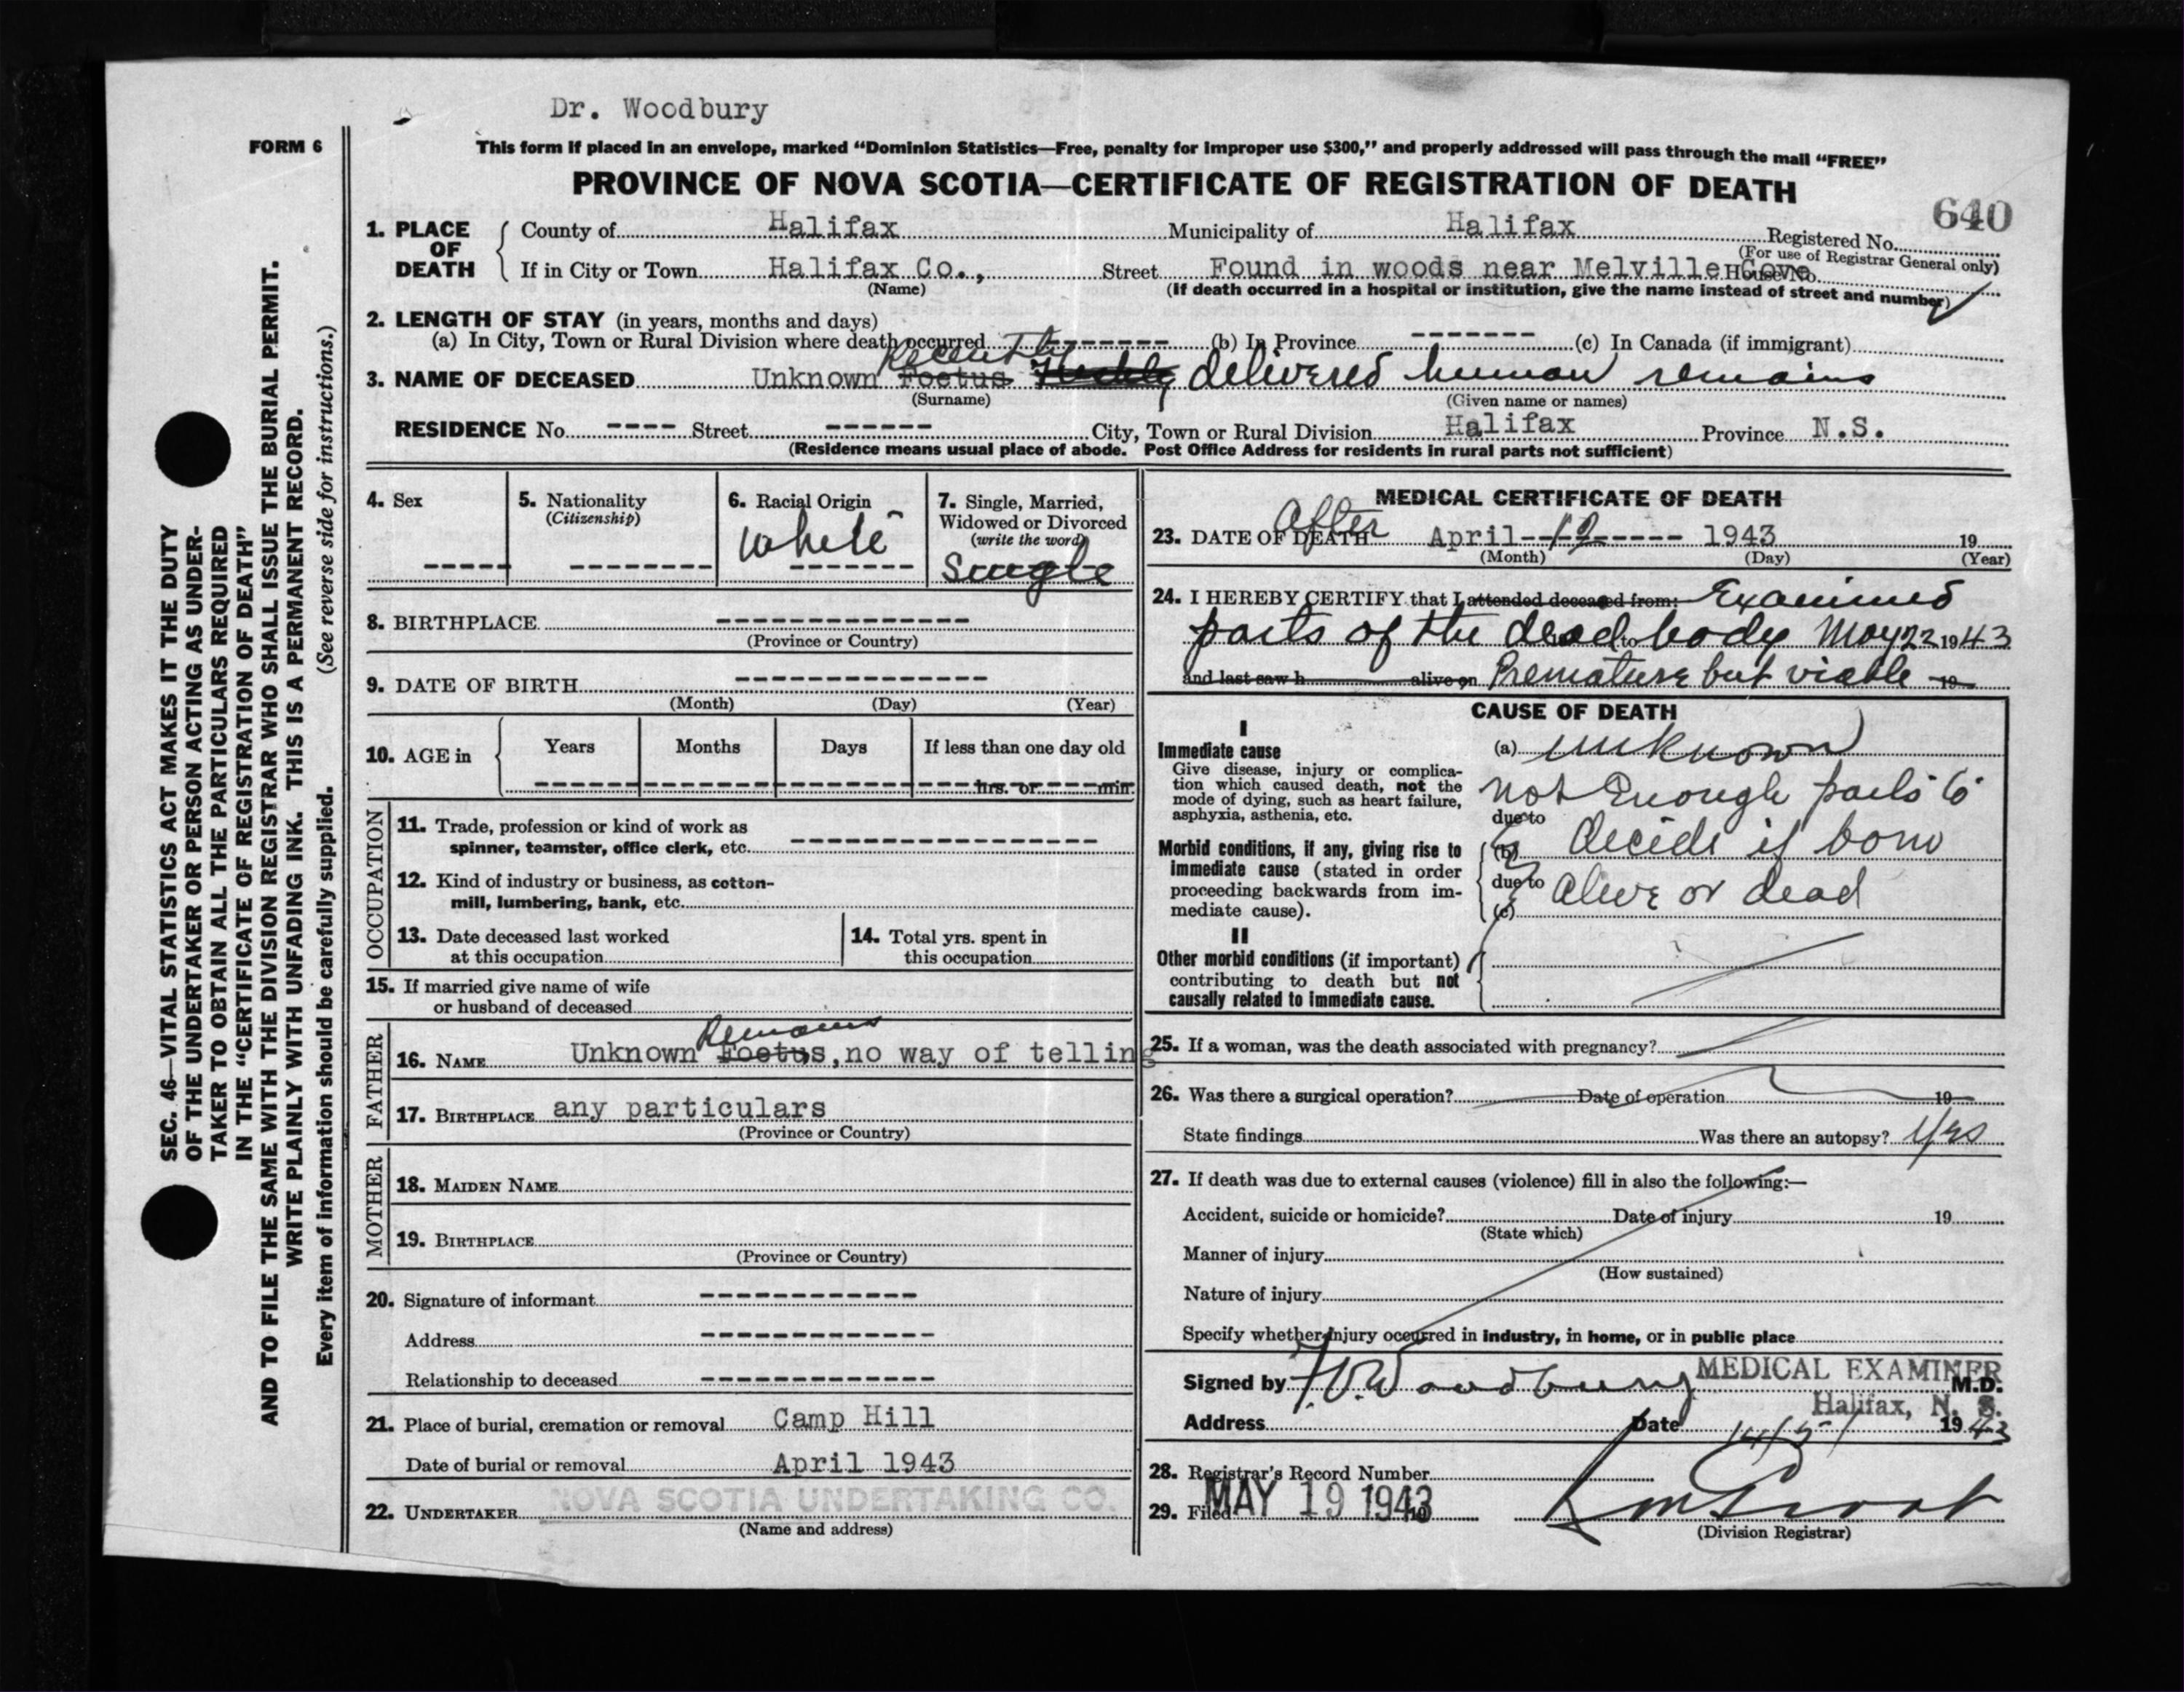 Dr. Woodbury
FORM 6
This form if placed in an envelope, marked “Dominion Statistics—Free, penalty for improper use $300,” and properly addressed will pass through the mail “FREE”
PROVINCE OF NOVA SCOTIA—CERTIFICATE OF REGISTRATION OF DEATH
640
1. PLACE OF DEATH
County of Halifax Municipality of Halifax Registered No.
(For use of Registrar General only)
If in City or Town Halifax Co., Street Found in woods near Melville Cove House No.
(Name) (If death occurred in a hospital or institution, give the name instead of street and number)
2. LENGTH OF STAY (in years, months and days)
(a) In City, Town or Rural Division where death occurred ------- (b) In Province ------- (c) In Canada (if immigrant)
Recently
3. NAME OF DECEASED Unknown Foetus delivered human remains
(Surname) (Given name or names)
RESIDENCE No. ---- Street ------ City, Town or Rural Division Halifax Province N.S.
(Residence means usual place of abode. Post Office Address for residents in rural parts not sufficient)
4. Sex -----
5. Nationality
(Citizenship)
--------
6. Racial Origin
White
-------
7. Single, Married,
Widowed or Divorced
(write the word)
Single
8. BIRTHPLACE --------------
(Province or Country)
9. DATE OF BIRTH --------------
(Month) (Day) (Year)
10. AGE in Years Months Days If less than one day old
hrs. or min.
OCCUPATION
11. Trade, profession or kind of work as
spinner, teamster, office clerk, etc. -----------------
12. Kind of industry or business, as cotton-
mill, lumbering, bank, etc.
13. Date deceased last worked
at this occupation
14. Total yrs. spent in
this occupation
15. If married give name of wife
or husband of deceased
FATHER
Remains
16. NAME Unknown Foetus, no way of telling
17. BIRTHPLACE any particulars
(Province or Country)
MOTHER
18. MAIDEN NAME
19. BIRTHPLACE
(Province or Country)
20. Signature of informant ------------
Address -------------
Relationship to deceased -------------
21. Place of burial, cremation or removal Camp Hill
Date of burial or removal April 1943
22. UNDERTAKER NOVA SCOTIA UNDERTAKING CO.
(Name and address)
MEDICAL CERTIFICATE OF DEATH
After
23. DATE OF DEATH April 1943 19
(Month) (Day) (Year)
24. I HEREBY CERTIFY that I attended deceased from: Examined
parts of the dead to body May 22 1943
and last saw h alive on Premature but viable 19
CAUSE OF DEATH
I
Immediate cause
Give disease, injury or complica-
tion which caused death, not the
mode of dying, such as heart failure,
asphyxia, asthenia, etc.
Morbid conditions, if any, giving rise to
immediate cause (stated in order
proceeding backwards from im-
mediate cause).
II
Other morbid conditions (if important)
contributing to death but not
causally related to immediate cause.
(a) unknown
not enough parts to
due to
(b) decide if born
due to alive or dead
(c)
25. If a woman, was the death associated with pregnancy?
26. Was there a surgical operation? Date of operation 19
State findings Was there an autopsy? Yes
27. If death was due to external causes (violence) fill in also the following:—
Accident, suicide or homicide? Date of injury 19
(State which)
Manner of injury
(How sustained)
Nature of injury
Specify whether injury occurred in industry, in home, or in public place
Signed by Woodbury MEDICAL EXAMINER M.D.
Halifax, N. S.
Address Date 14/5/ 1943
28. Registrar's Record Number
29. Filed MAY 19 1943 19
(Division Registrar)
SEC. 46—VITAL STATISTICS ACT MAKES IT THE DUTY
OF THE UNDERTAKER OR PERSON ACTING AS UNDER-
TAKER TO OBTAIN ALL THE PARTICULARS REQUIRED
IN THE “CERTIFICATE OF REGISTRATION OF DEATH”
AND TO FILE THE SAME WITH THE DIVISION REGISTRAR WHO SHALL ISSUE THE BURIAL PERMIT.
WRITE PLAINLY WITH UNFADING INK. THIS IS A PERMANENT RECORD.
Every item of information should be carefully supplied. (See reverse side for instructions.)